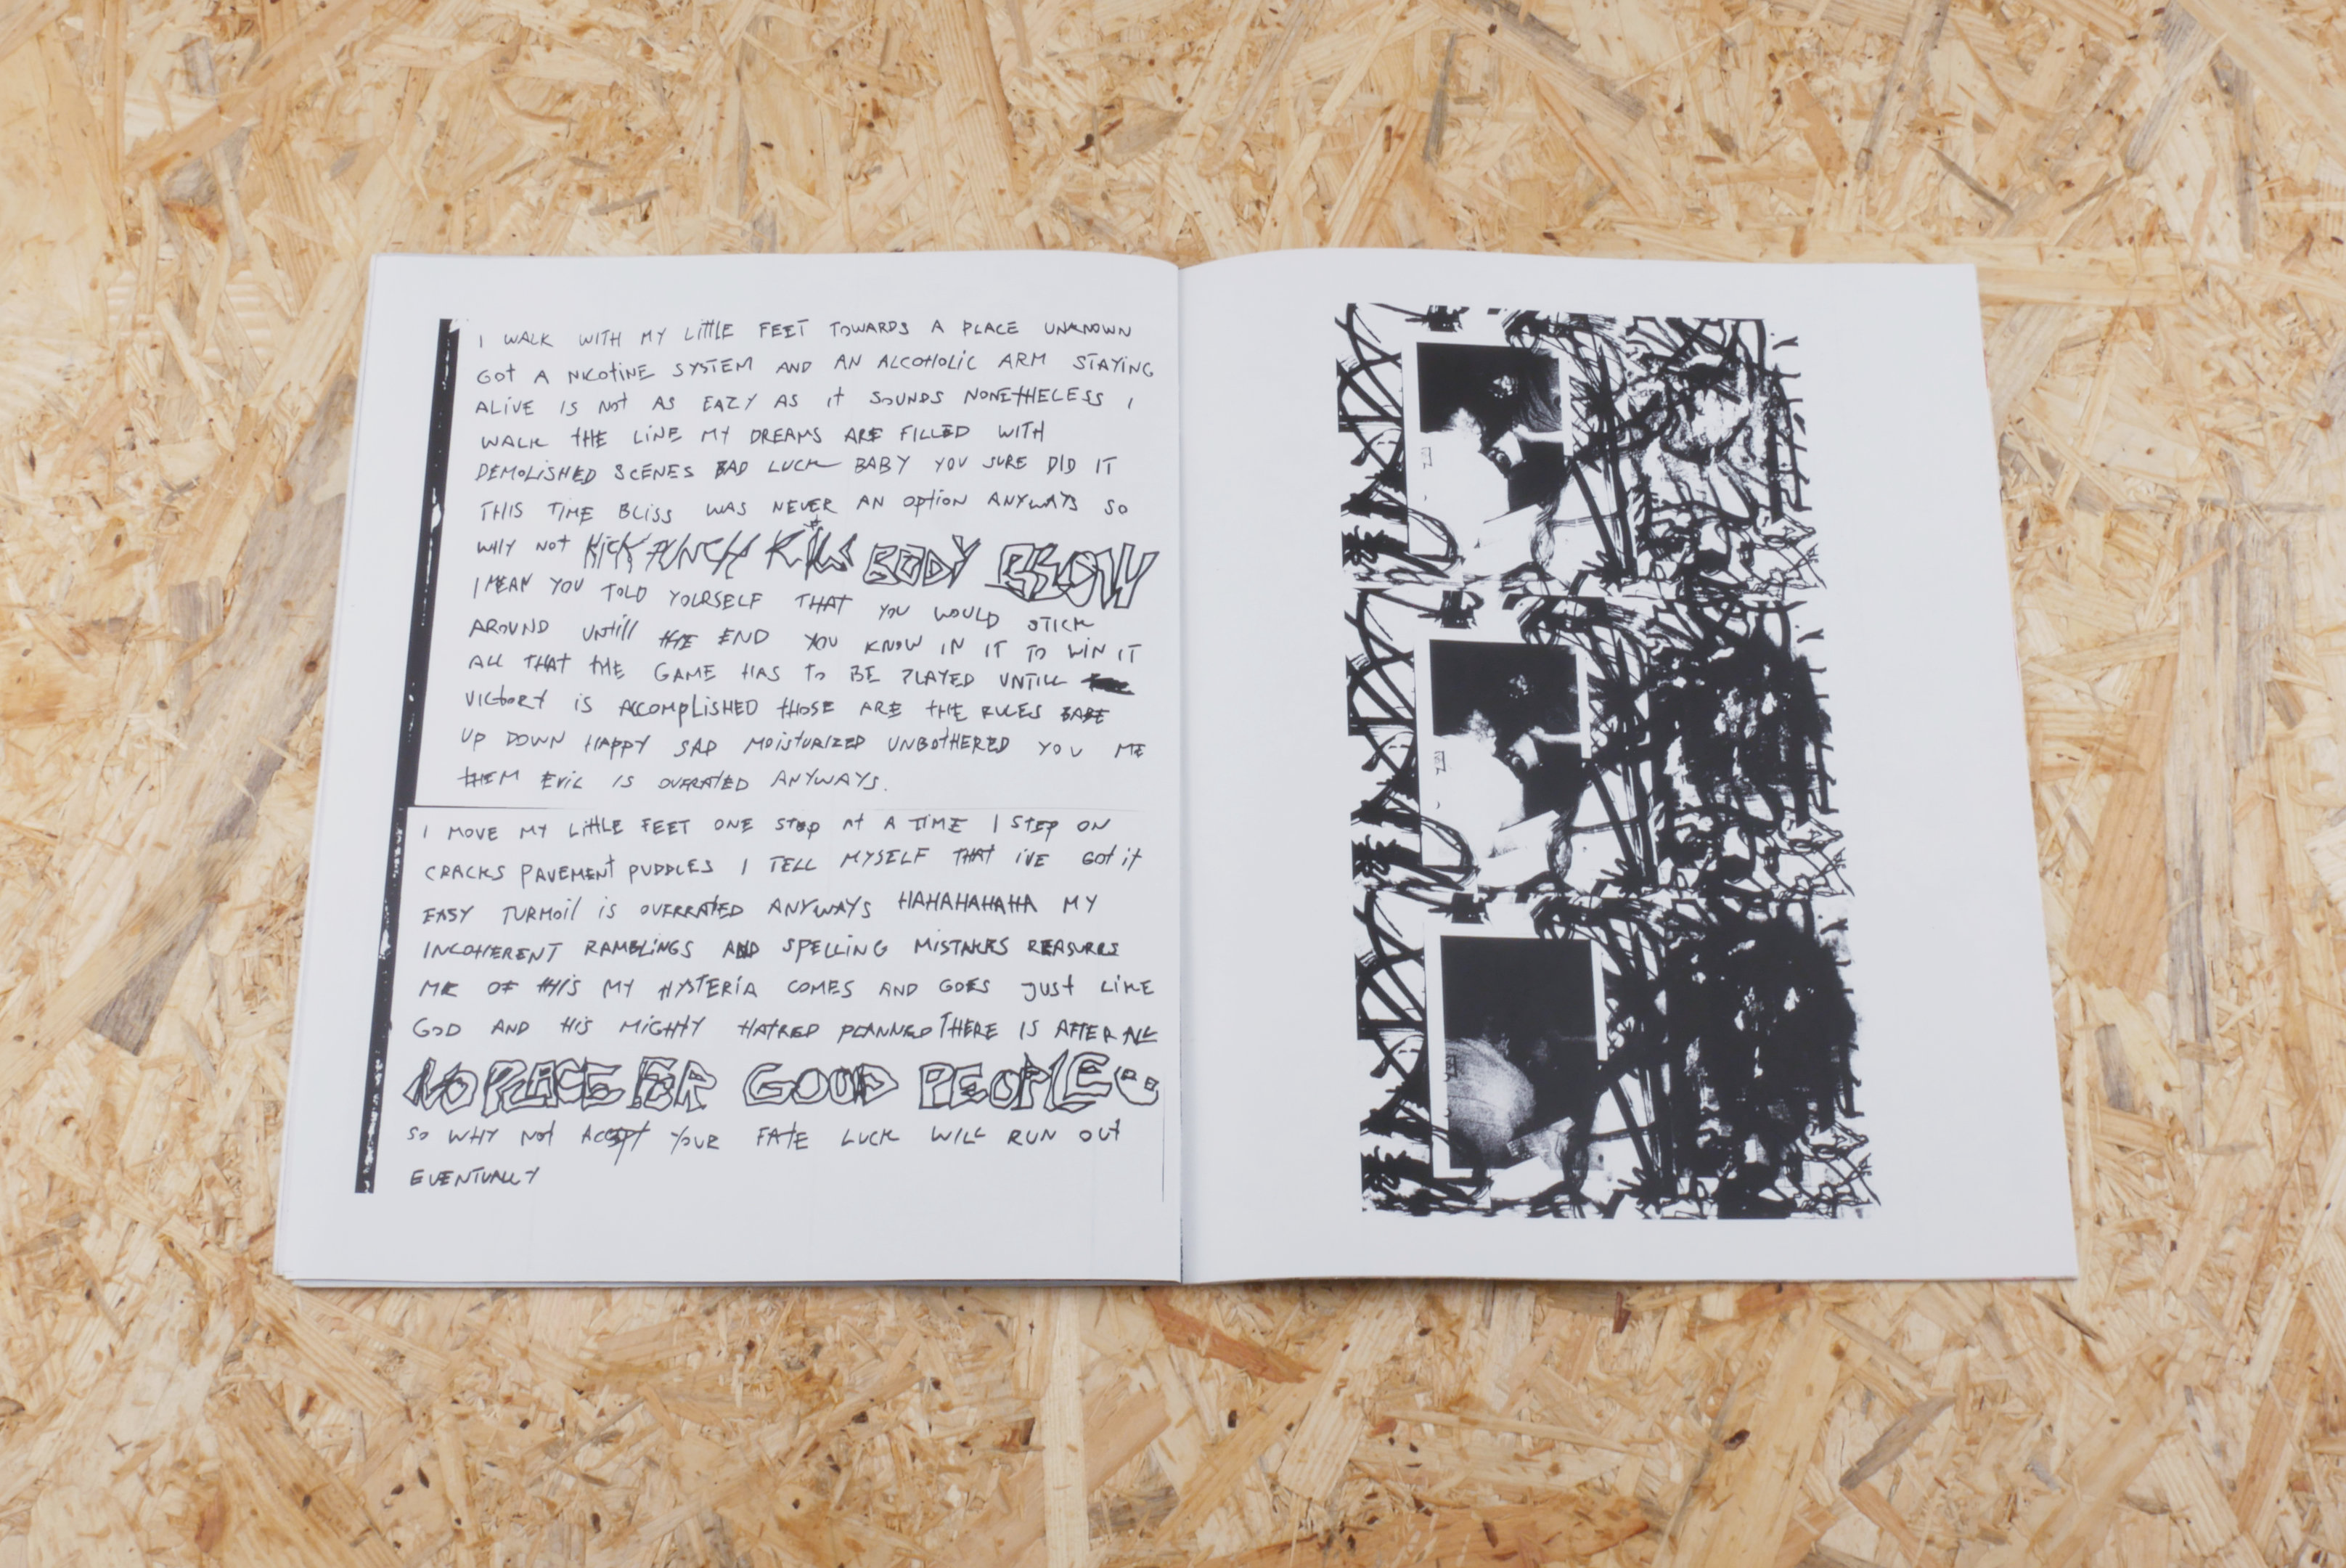 I WALK WITH MY LITTLE FEET TOWARDS A PLACE UNKNOWN
GOT A NICOTINE SYSTEM AND AN ALCOHOLIC ARM STAYING
ALIVE IS NOT AS EAZY AS IT SOUNDS NONETHELESS I
WALK THE LINE MY DREAMS ARE FILLED WITH
DEMOLISHED SCENES BAD LUCK BABY YOU SURE DID IT
THIS TIME BLISS WAS NEVER AN OPTION ANYWAYS SO
WHY NOT KICK PUNCH KILL BODY BLOW
I MEAN YOU TOLD YOURSELF THAT YOU WOULD STICK
AROUND UNTILL THE END YOU KNOW IN IT TO WIN IT
ALL THAT THE GAME HAS TO BE PLAYED UNTILL
VICTORY IS ACCOMPLISHED THOSE ARE THE RULES BABE
UP DOWN HAPPY SAD MOISTURIZED UNBOTHERED YOU ME
THEM EVIL IS OVERATED ANYWAYS.
I MOVE MY LITTLE FEET ONE STEP AT A TIME I STEP ON
CRACKS PAVEMENT PUDDLES I TELL MYSELF THAT I'VE GOT IT
EASY TURMOIL IS OVERRATED ANYWAYS HAHAHAHAHA MY
INCOHERENT RAMBLINGS AND SPELLING MISTAKES REASURES
ME OF THIS MY HYSTERIA COMES AND GOES JUST LIKE
GOD AND HIS MIGHTY HATRED PLANNED THERE IS AFTER ALL
NO PLACE FOR GOOD PEOPLE
SO WHY NOT ACCEPT YOUR FATE LUCK WILL RUN OUT
EVENTUALLY